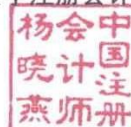 中国注册
会计师
杨晓燕